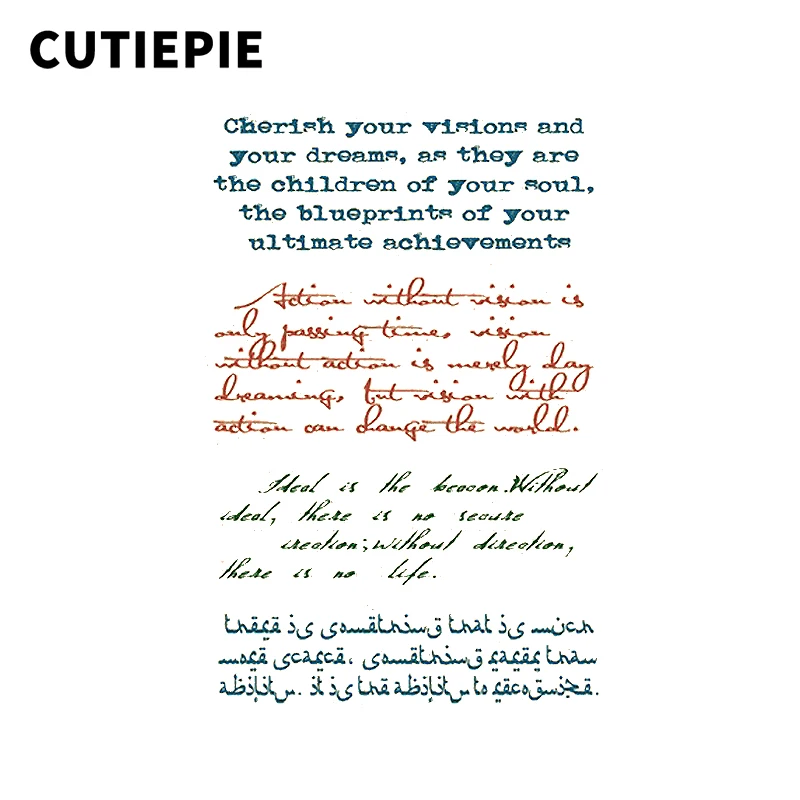 CUTIEPIE
Cherish your visions and
your dreams, as they are
the children of your soul,
the blueprints of your
ultimate achievements
Action without vision is
only passing time, vision
without action is merely day
dreaming, but vision with
action can change the world.
Ideal is the beacon.Without
ideal, there is no secure
irection;without direction,
there is no life.
there is something that is much
more scarce, something rarer than
ability. it is the ability to recognize.